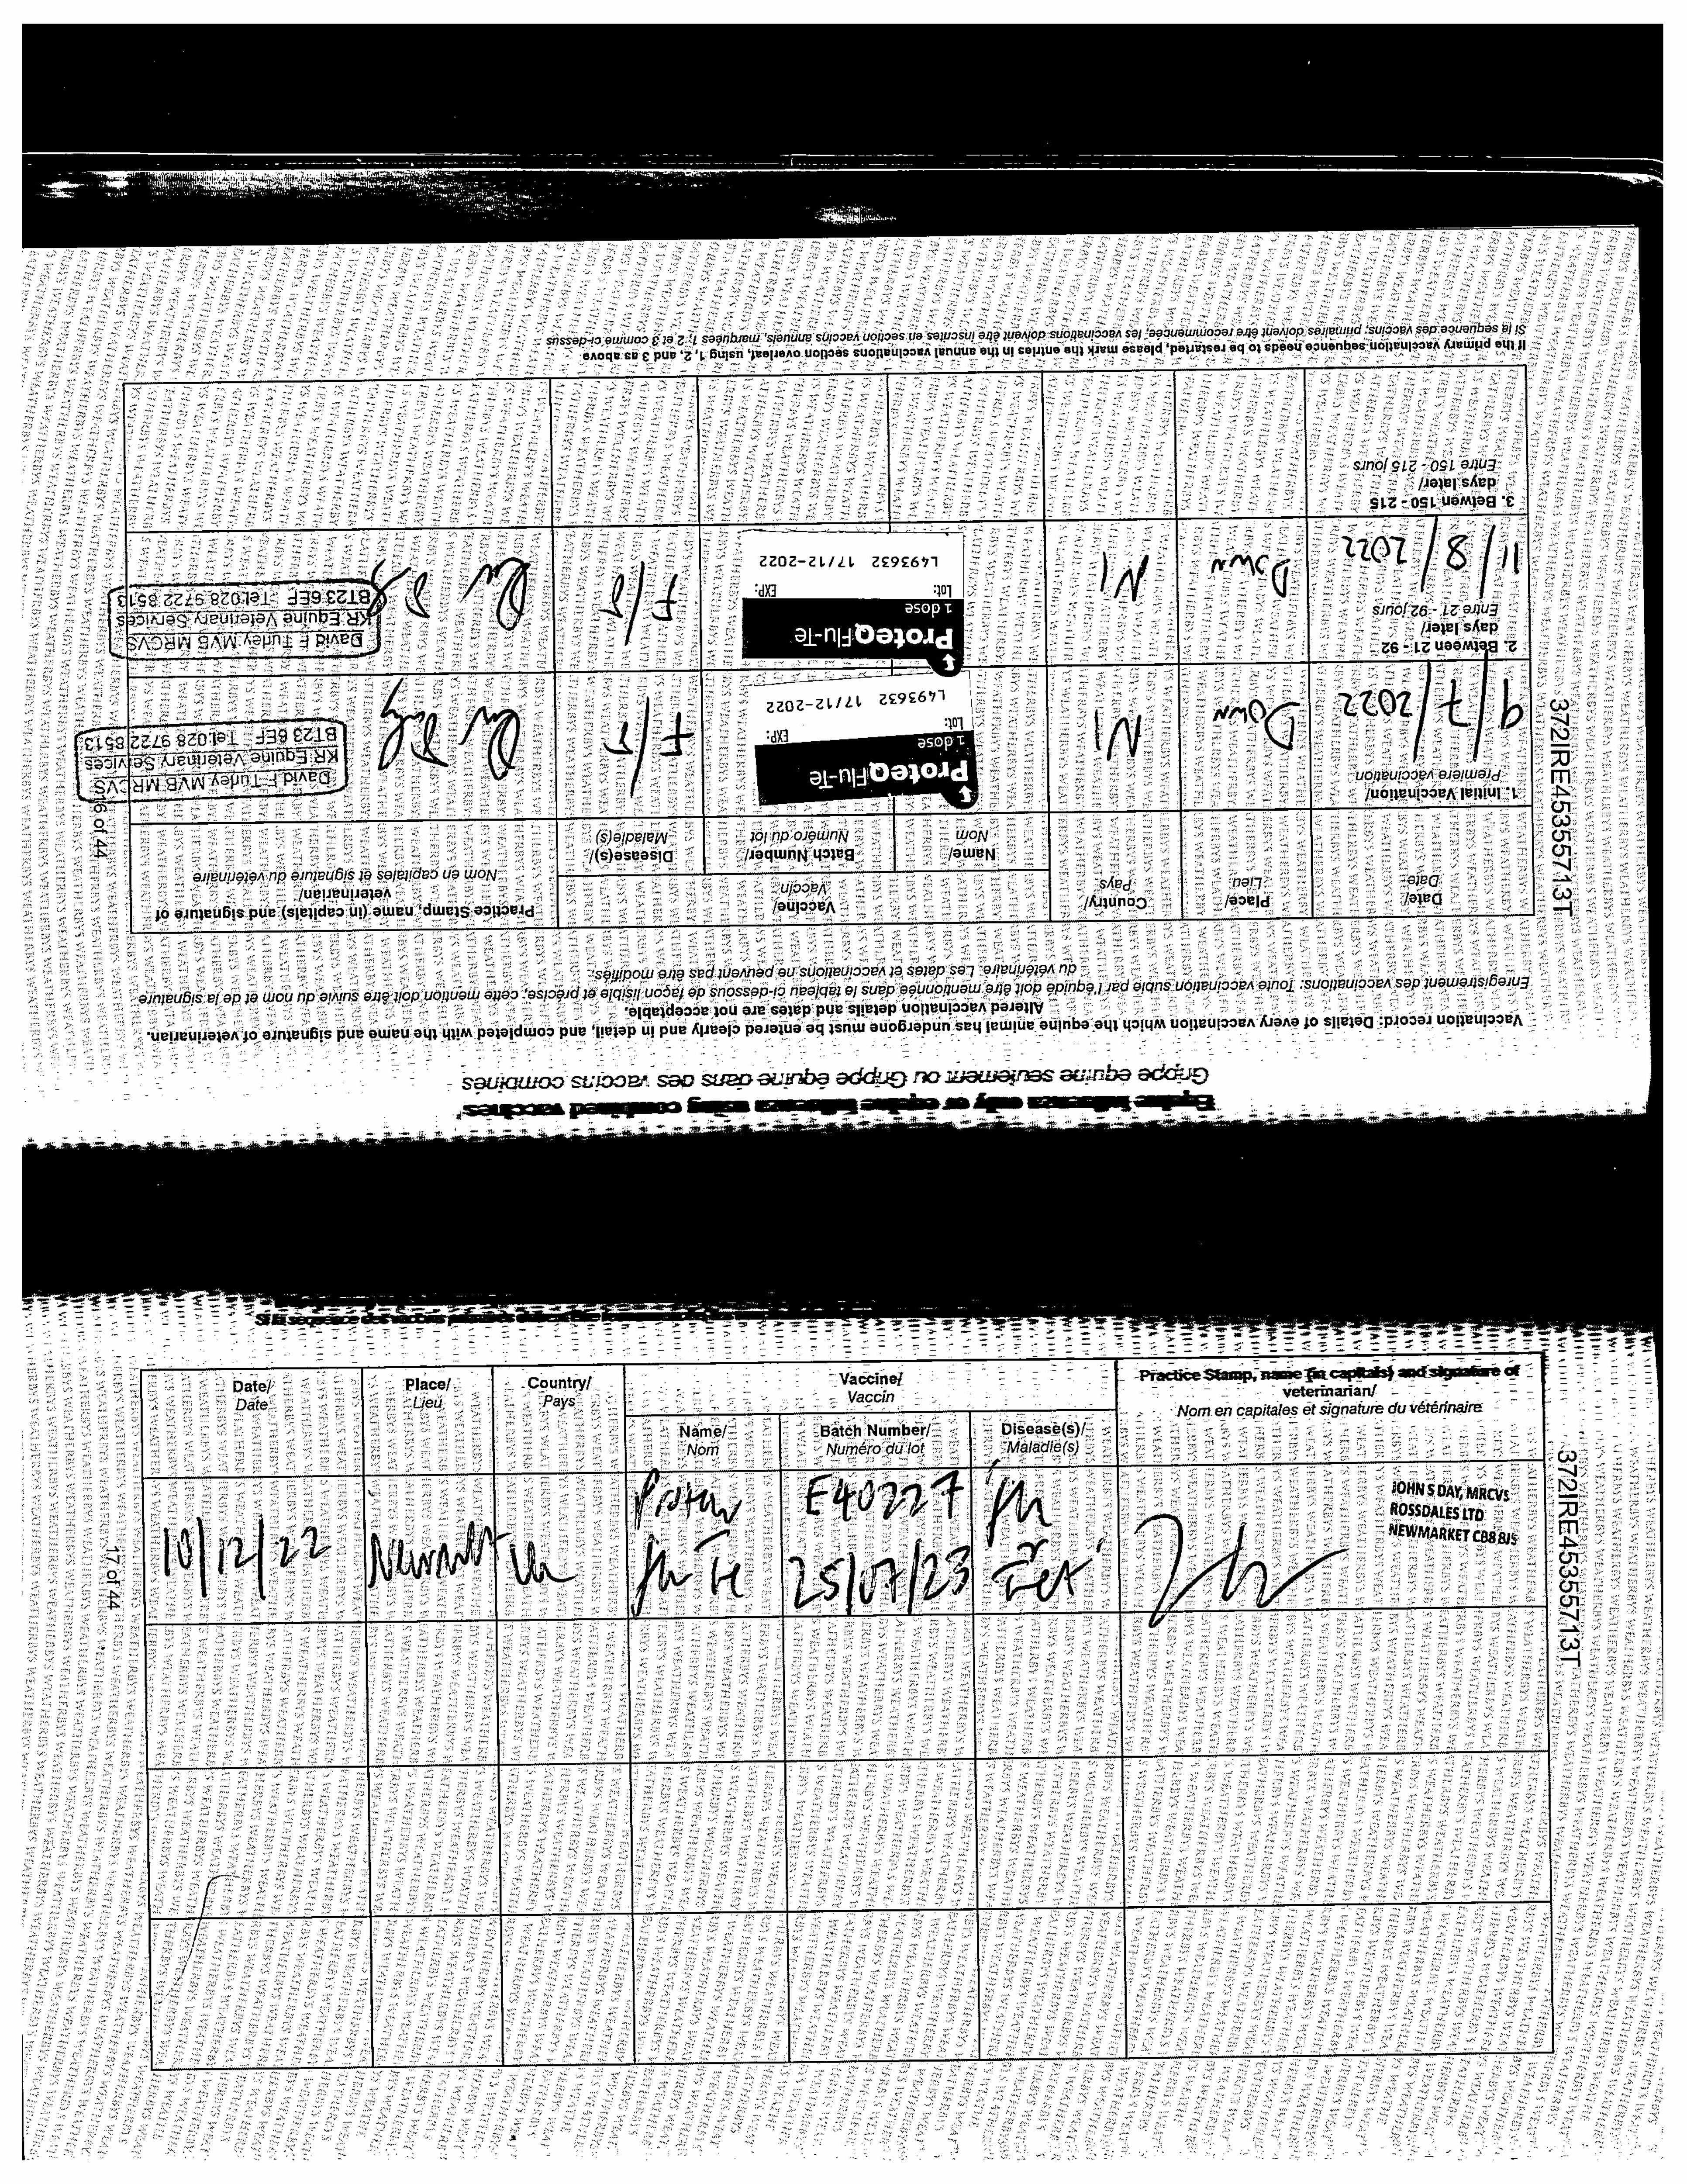 Equine influenza only or equine influenza using combined vaccines
Grippe équine seulement ou Grippe équine dans des vaccins combinés
Vaccination record: Details of every vaccination which the equine animal has undergone must be entered clearly and in detail, and completed with the name and signature of veterinarian.
Altered vaccination details and dates are not acceptable.
Enregistrement des vaccinations: Toute vaccination subie par l'équidé doit être mentionnée dans le tableau ci-dessous de façon lisible et précise, cette mention doit être suivie du nom et de la signature
du vétérinaire. Les dates et vaccinations ne peuvent pas être modifiés.
Date/
Date
Place/
Lieu
Country/
Pays
Vaccine/
Vaccin
Practice Stamp, name (in capitals) and signature of
veterinarian/
Nom en capitales et signature du vétérinaire
Name/
Nom
Batch Number/
Numéro du lot
Disease(s)/
Maladie(s)
1. Initial Vaccination/
Première vaccination
9/7/2022
Down
NI
ProteqFlu-Te
1 dose
Lot: EXP:
L493632 17/12-2022
F/T
David F Turley MVB MRCVS
KR Equine Veterinary Services
BT23 6EF Tel:028 9722 8513
2. Between 21 - 92
days later/
Entre 21 - 92 jours
11/8/2022
Down
NI
ProteqFlu-Te
1 dose
Lot: EXP:
L493632 17/12-2022
F/T
David F Turley MVB MRCVS
KR Equine Veterinary Services
BT23 6EF Tel:028 9722 8513
3. Betwen 150 - 215
days later/
Entre 150 - 215 jours
If the primary vaccination sequence needs to be restarted, please mark the entries in the annual vaccinations section overleaf, using 1, 2, and 3 as above
Si la séquence des vaccins primaires doivent être recommencée, les vaccinations doivent être inscrites en section vaccins annuels, marquées 1, 2 et 3 comme ci-dessus
16 of 44
372IRE45355713T
Date/
Date
Place/
Lieu
Country/
Pays
Vaccine/
Vaccin
Practice Stamp, name (in capitals) and signature of
veterinarian/
Nom en capitales et signature du vétérinaire
Name/
Nom
Batch Number/
Numéro du lot
Disease(s)/
Maladie(s)
10/12/22
Newmkt
UK
Proteq
Flu Te
E40227
25/07/23
Flu
Tet
JOHN S DAY, MRCVS
ROSSDALES LTD
NEWMARKET CB8 8JS
17 of 44
372IRE45355713T